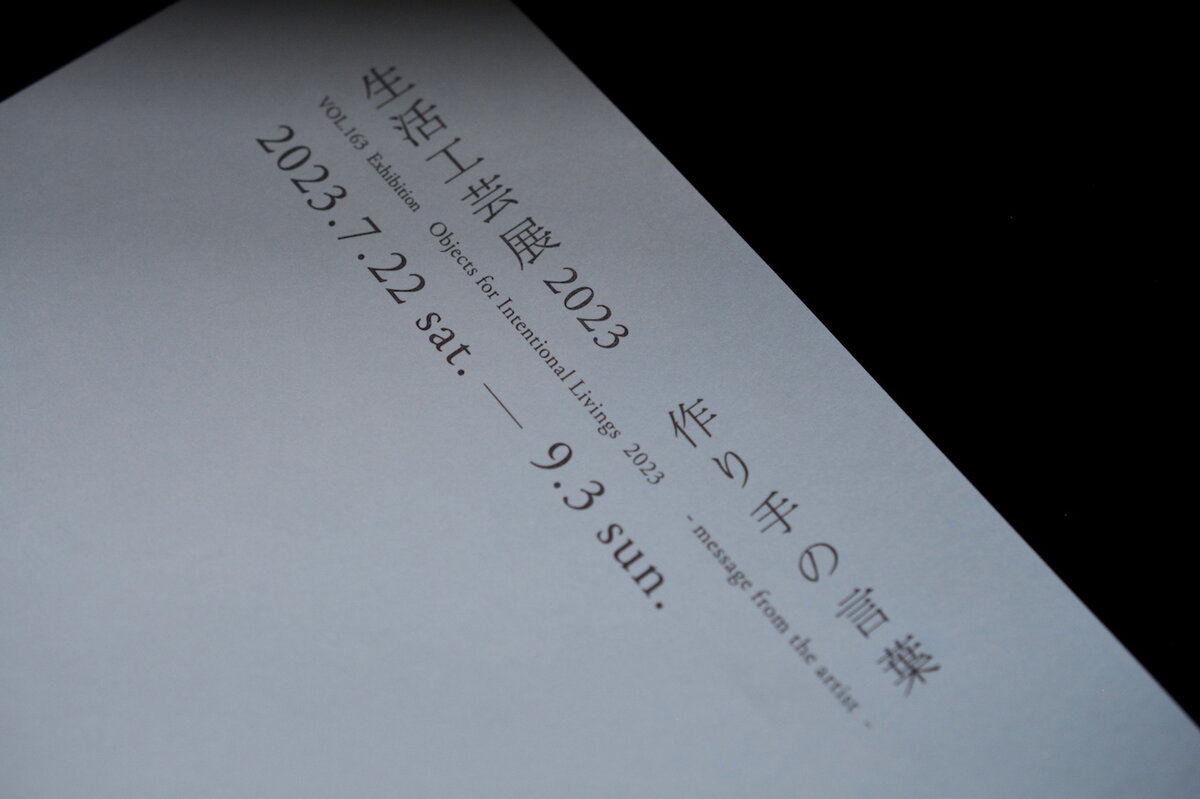 生活工芸展 2023　作り手の言葉
VOL.163 Exhibition Objects for Intentional Livings 2023 - message from the artist -
2023.7.22 sat. — 9.3 sun.